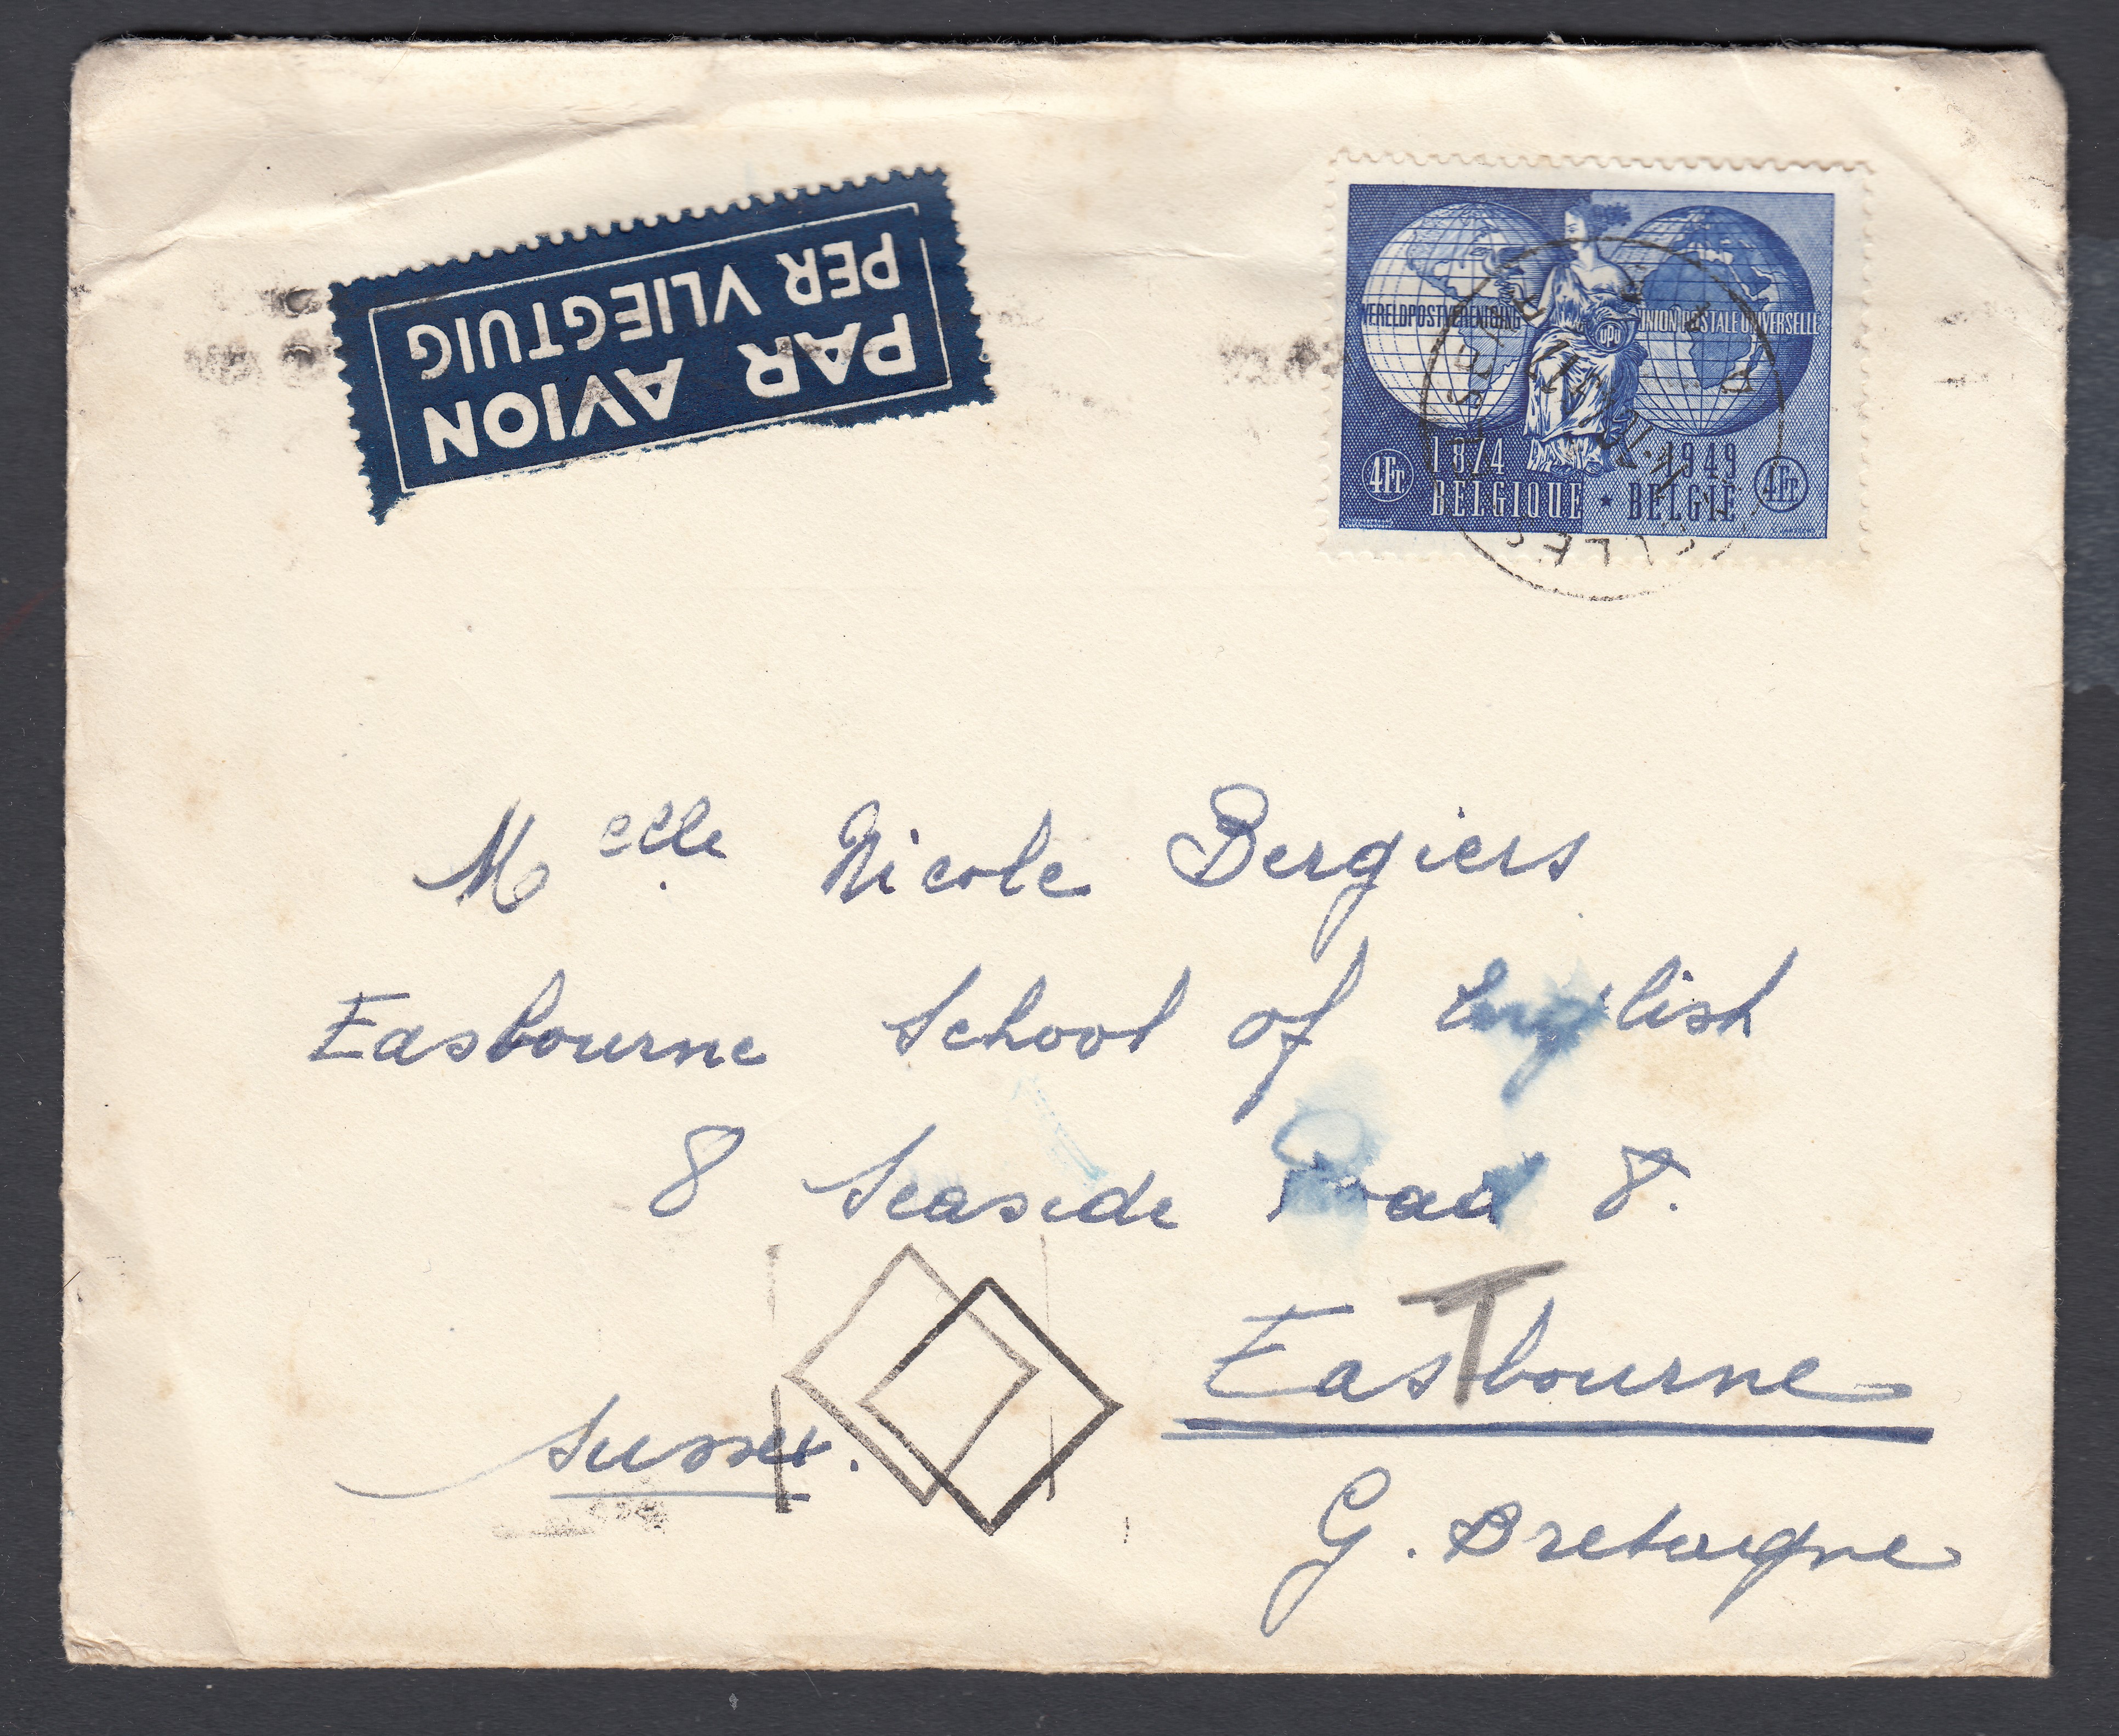 PAR AVION
PER VLIEGTUIG
WERELDPOSTVERENIGING UNION POSTALE UNIVERSELLE
UPU
1874 1949
4Fr BELGIQUE ★ BELGIË 4Fr
Melle Nicole Bergiers
Easbourne School of English
8 Seaside Road 8.
T
Eastbourne
Sussex.
G. Bretagne